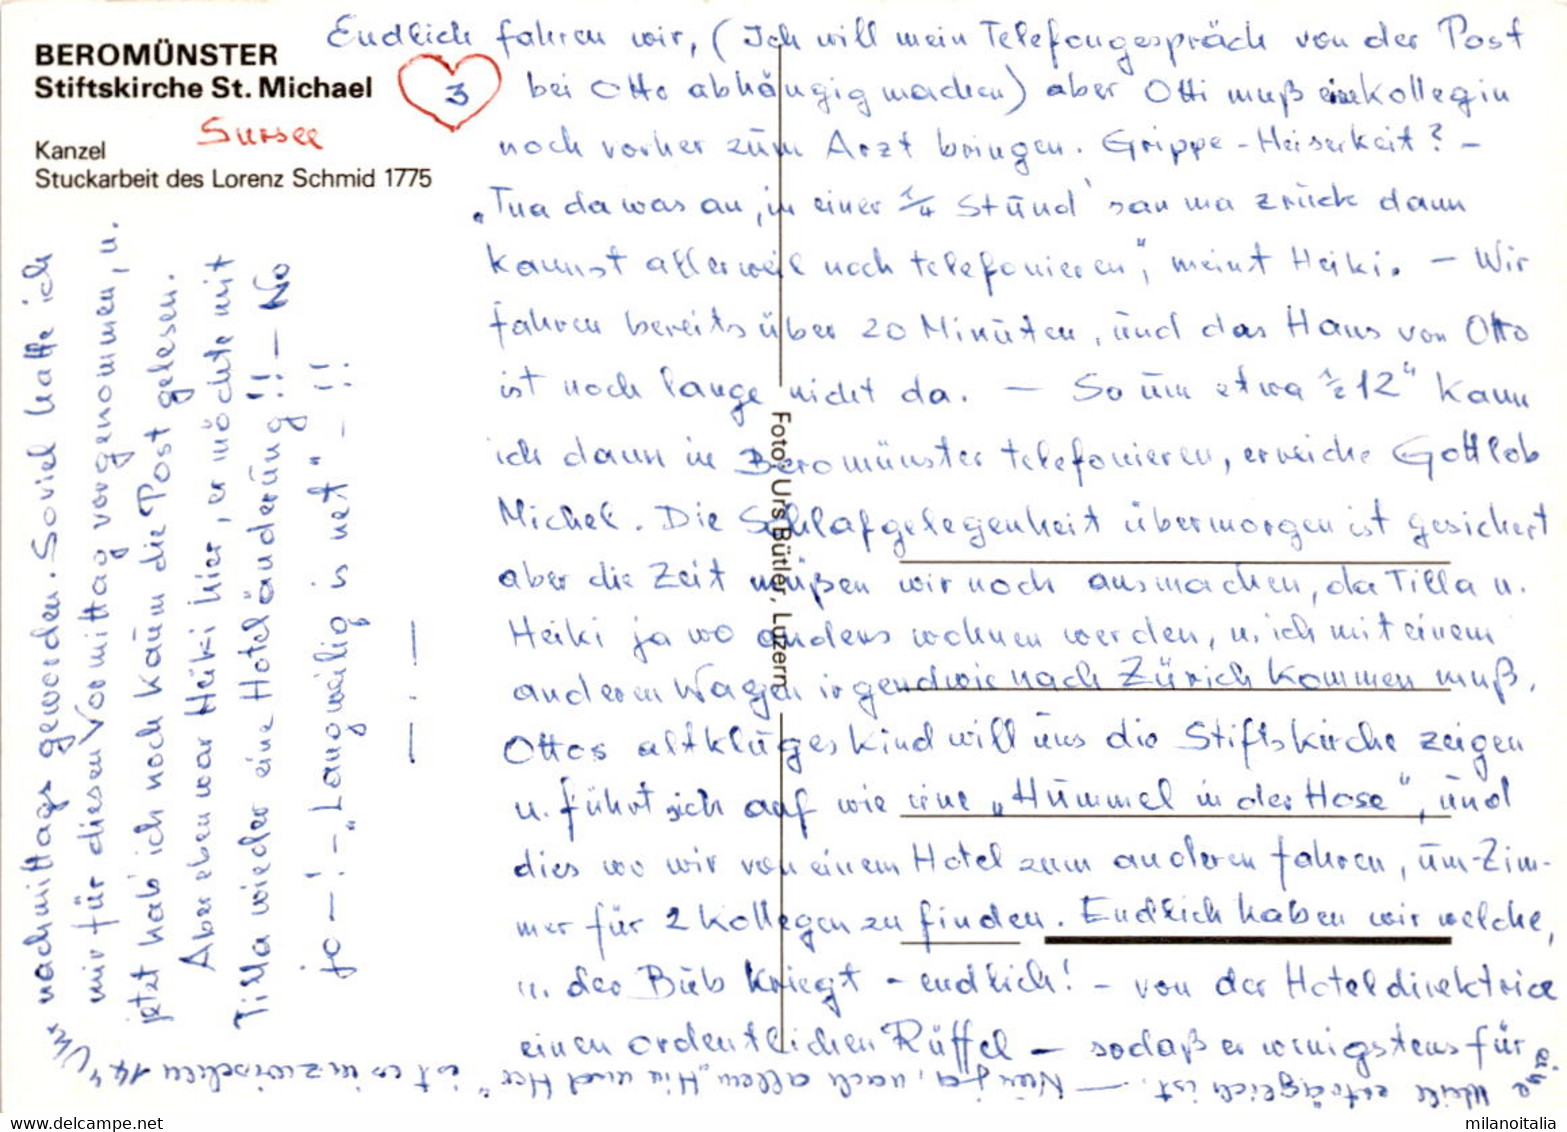 BEROMÜNSTER
Stiftskirche St. Michael
3
Sursee
Kanzel
Stuckarbeit des Lorenz Schmid 1775
Endlich fahren wir, (Ich will mein Telefongespräch von der Post
bei Otto abhängig machen) aber Otti muß eine Kollegin
noch vorher zum Arzt bringen. Grippe - Heiserkeit? -
"Tua da was an, in einer 1/4 Stund' san ma zrück dann
kannst allerweil noch telefonieren", meint Heiki. - Wir
fahren bereits über 20 Minuten, und das Haus von Otto
ist noch lange nicht da. - So um etwa 1/2 12" kann
ich dann in Beromünster telefonieren, erreiche Gottlob
Michel. Die Schlafgelegenheit übermorgen ist gesichert
aber die Zeit müßen wir noch ausmachen, da Tilla u.
Heiki ja wo anders wohnen werden, u. ich mit einem
anderen Wagen irgendwie nach Zürich kommen muß.
Ottos altkluges Kind will uns die Stiftskirche zeigen
u. führt sich auf wie eine "Hummel in der Hose", und
dies wo wir von einem Hotel zum anderen fahren, um Zim-
mer für 2 Kollegen zu finden. Endlich haben wir welche,
u. der Bub kriegt - endlich! - von der Hoteldirektrice
einen ordentlichen Rüffel - sodaß er wenigstens für
eine Weile erträglich ist. - Nun ja, nach allem "Hin und Her" ist es inzwischen 14h Uhr
nachmittags geworden. Soviel hatte ich
mir für diesen Vormittag vorgenommen, u.
jetzt hab' ich noch kaum die Post gelesen.
Aber eben war Heiki hier, er möchte mit
Tilla wieder eine Hoteländerung!! - No
jo - ! - "Langweilig is net" - !!
- . -
Foto: Urs Bütler, Luzern
milanoitalia